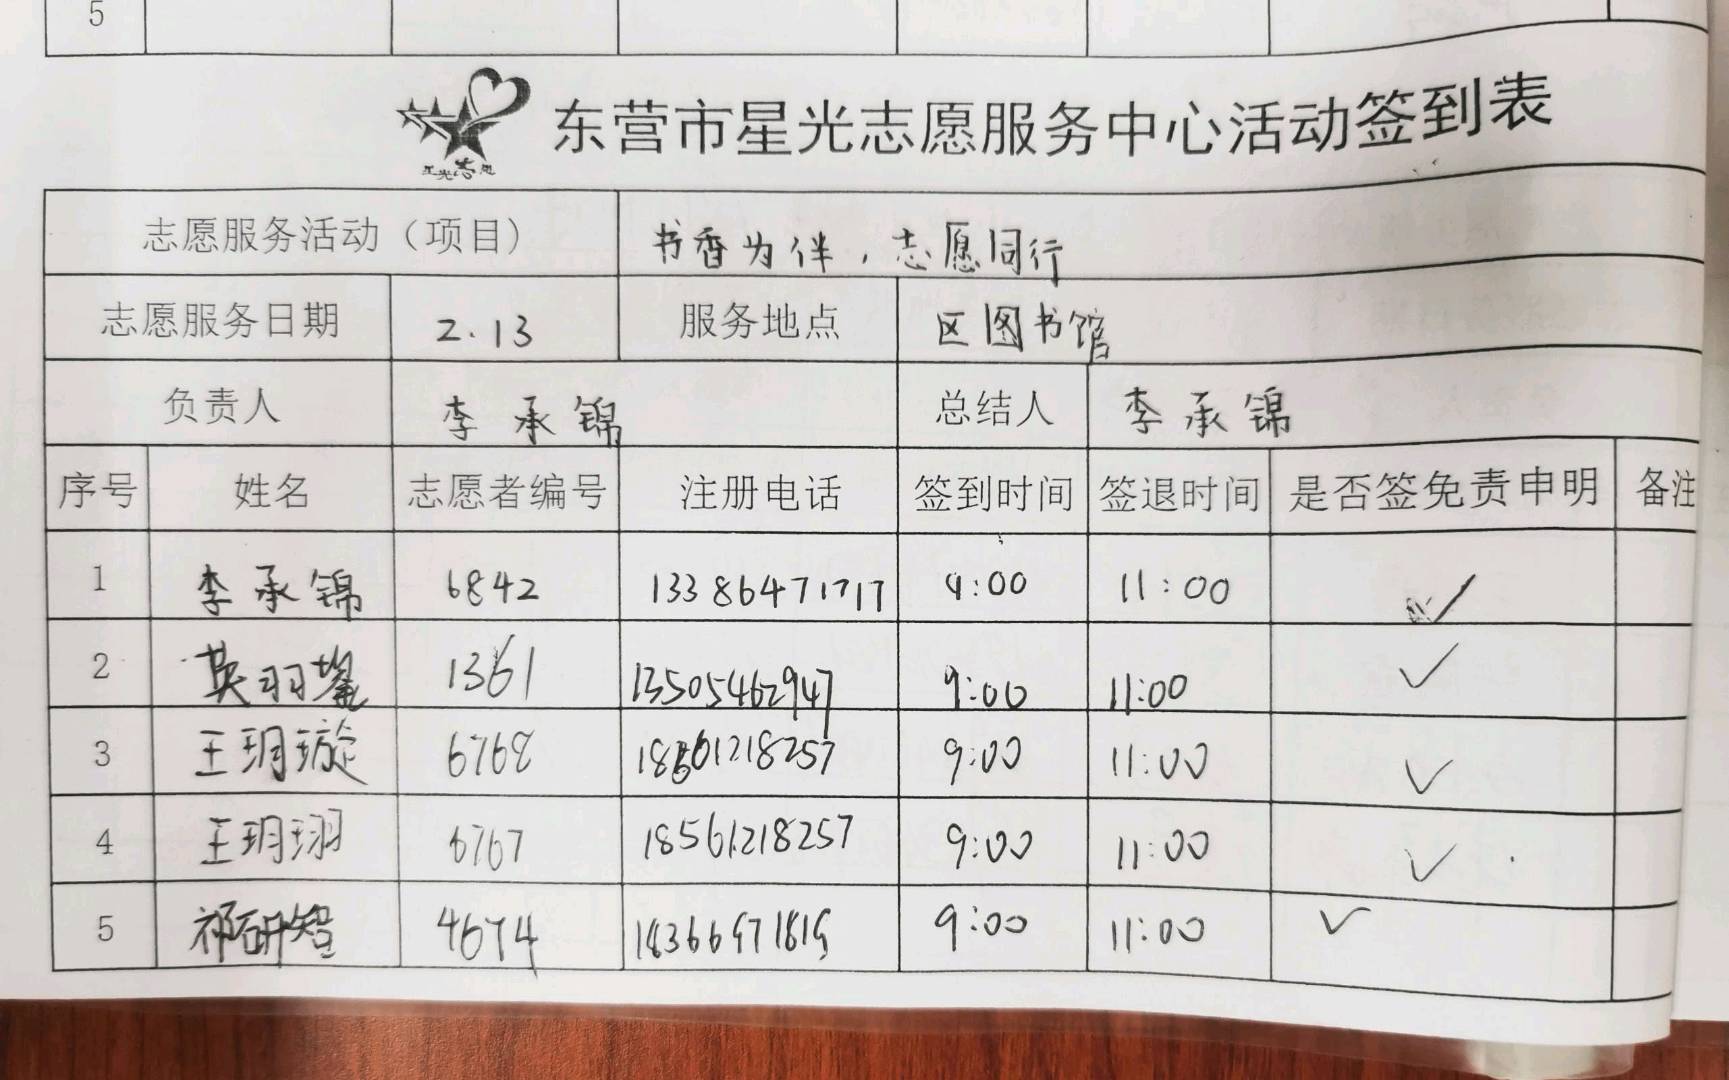 5
星光志愿
东营市星光志愿服务中心活动签到表
志愿服务活动（项目） 书香为伴，志愿同行
志愿服务日期 2.13 服务地点 区图书馆
负责人 李承锦 总结人 李承锦
序号 姓名 志愿者编号 注册电话 签到时间 签退时间 是否签免责申明 备注
1 李承锦 6842 13386471717 9:00 11:00 ✓
2 1361 13505462947 9:00 11:00 ✓
3 王玥璇 6768 18561218257 9:00 11:00 ✓
4 王玥珝 6767 18561218257 9:00 11:00 ✓
5 祁研智 4674 9:00 11:00 ✓